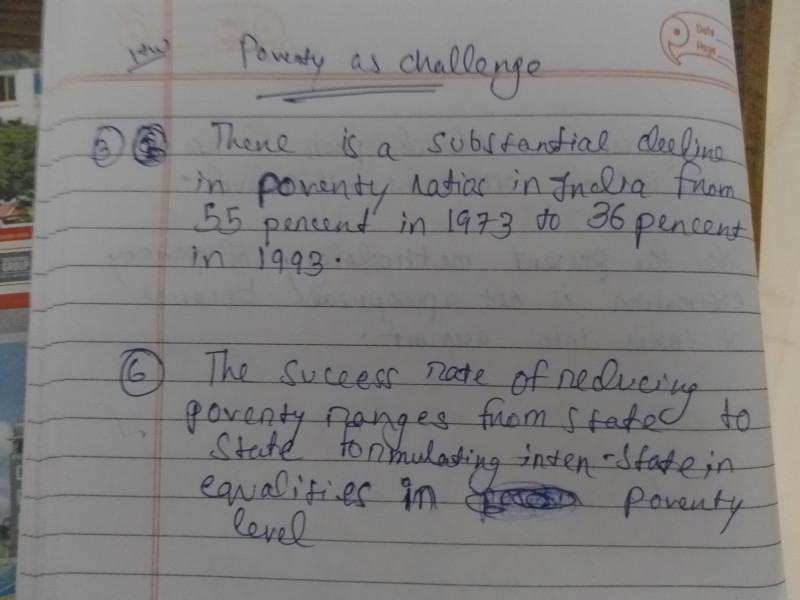 Poverty as challenge
Date
Page
③ There is a substantial decline
in poverty ratios in India from
55 percent in 1973 to 36 percent
in 1993.
⑥ The success rate of reducing
poverty ranges from state to
state formulating inter-state in
equalities in poverty
level